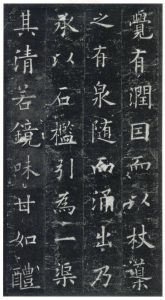 覺有潤因而以杖導
之有泉随而涌出乃
承以石檻引為一渠
其清若鏡味甘如醴